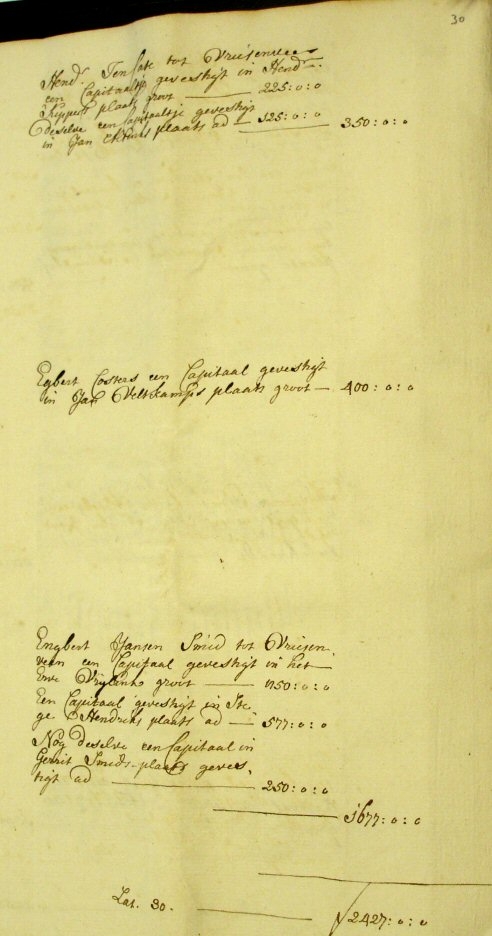 30
Hendr. Ten Cate tot Vriesenveen
een Capitaaltje gevestigt in Hendr.
Schippers plaats groot — 225:0:0
deselve een Capitaaltje gevestigt
in Jan plaats ad — 125:0:0
350:0:0
Egbert Costers een Capitaal gevestigt
in Jan Veltkamps plaats groot — 400:0:0
Engbert Jansen Smid tot Vriesen,
veen een Capitaal gevestigt in het
Erve Vrylink groot — 850:0:0
Een Capitaal gevestigt in Ste,
ge Hendriks plaats ad — 577:0:0
Nog deselve een Capitaal in
Gerrit Smids plaats geves,
tigt ad — 250:0:0
1677:0:0
Lat. 30. — ƒ 2427:0:0